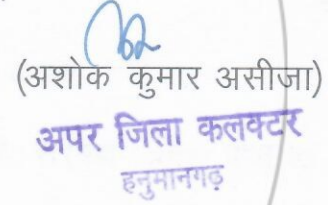 (अशोक कुमार असीजा)
अपर जिला कलक्टर
हनुमानगढ़